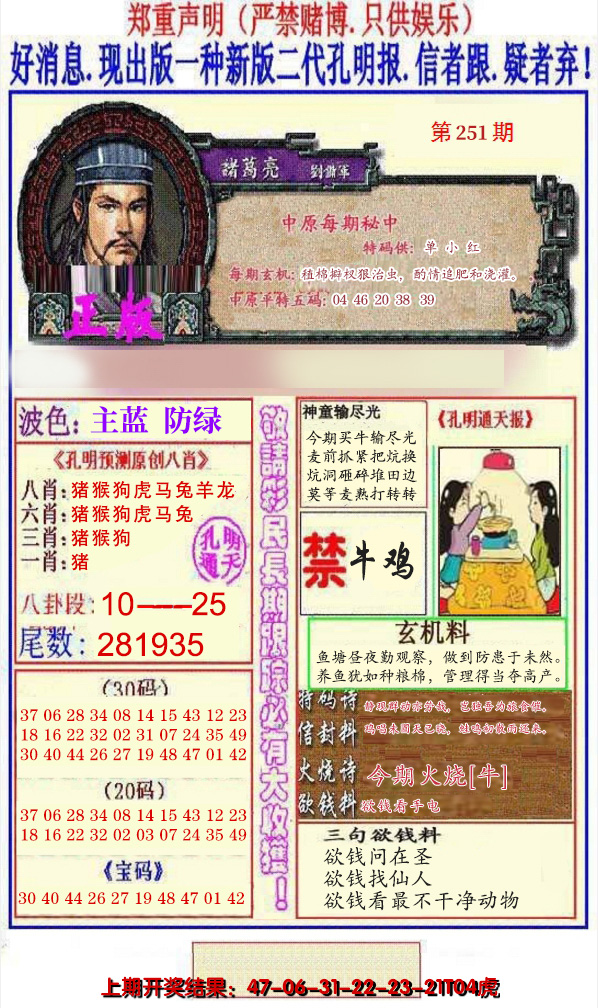 郑重声明（严禁赌博.只供娱乐）
好消息.现出版一种新版二代孔明报.信者跟.疑者弃！
第251期
諸葛亮
劉備軍
中原每期秘中
特码供：单小红
每期玄机：植棉擀权狠治虫，酌情追肥和浇灌。
中原平特五码：04 46 20 38 39
正版
波色：主蓝 防绿
《孔明预测原创八肖》
八肖：猪猴狗虎马兔羊龙
六肖：猪猴狗虎马兔
三肖：猪猴狗
一肖：猪
孔明
通天
八卦段：10——25
尾数：281935
（30码）
37 06 28 34 08 14 15 43 12 23
18 16 22 32 02 31 07 24 35 49
30 40 44 26 27 19 48 47 01 42
（20码）
37 06 28 34 08 14 15 43 12 23
18 16 22 32 02 03 07 24 35 49
《宝码》
30 40 44 26 27 19 48 47 01 42
敬請彩民長期跟踪必有大收獲！
神童输尽光
今期买牛输尽光
麦前抓紧把炕换
炕洞砸碎堆田边
莫等麦熟打转转
《孔明通天报》
禁 牛鸡
玄机料
鱼塘昼夜勤观察，做到防患于未然。
养鱼犹如种粮棉，管理得当夺高产。
特码诗
信封料
火烧诗 今期火烧[牛]
欲钱料 欲钱看手电
三句欲钱料
欲钱问在圣
欲钱找仙人
欲钱看最不干净动物
上期开奖结果：47-06-31-22-23-21T04虎